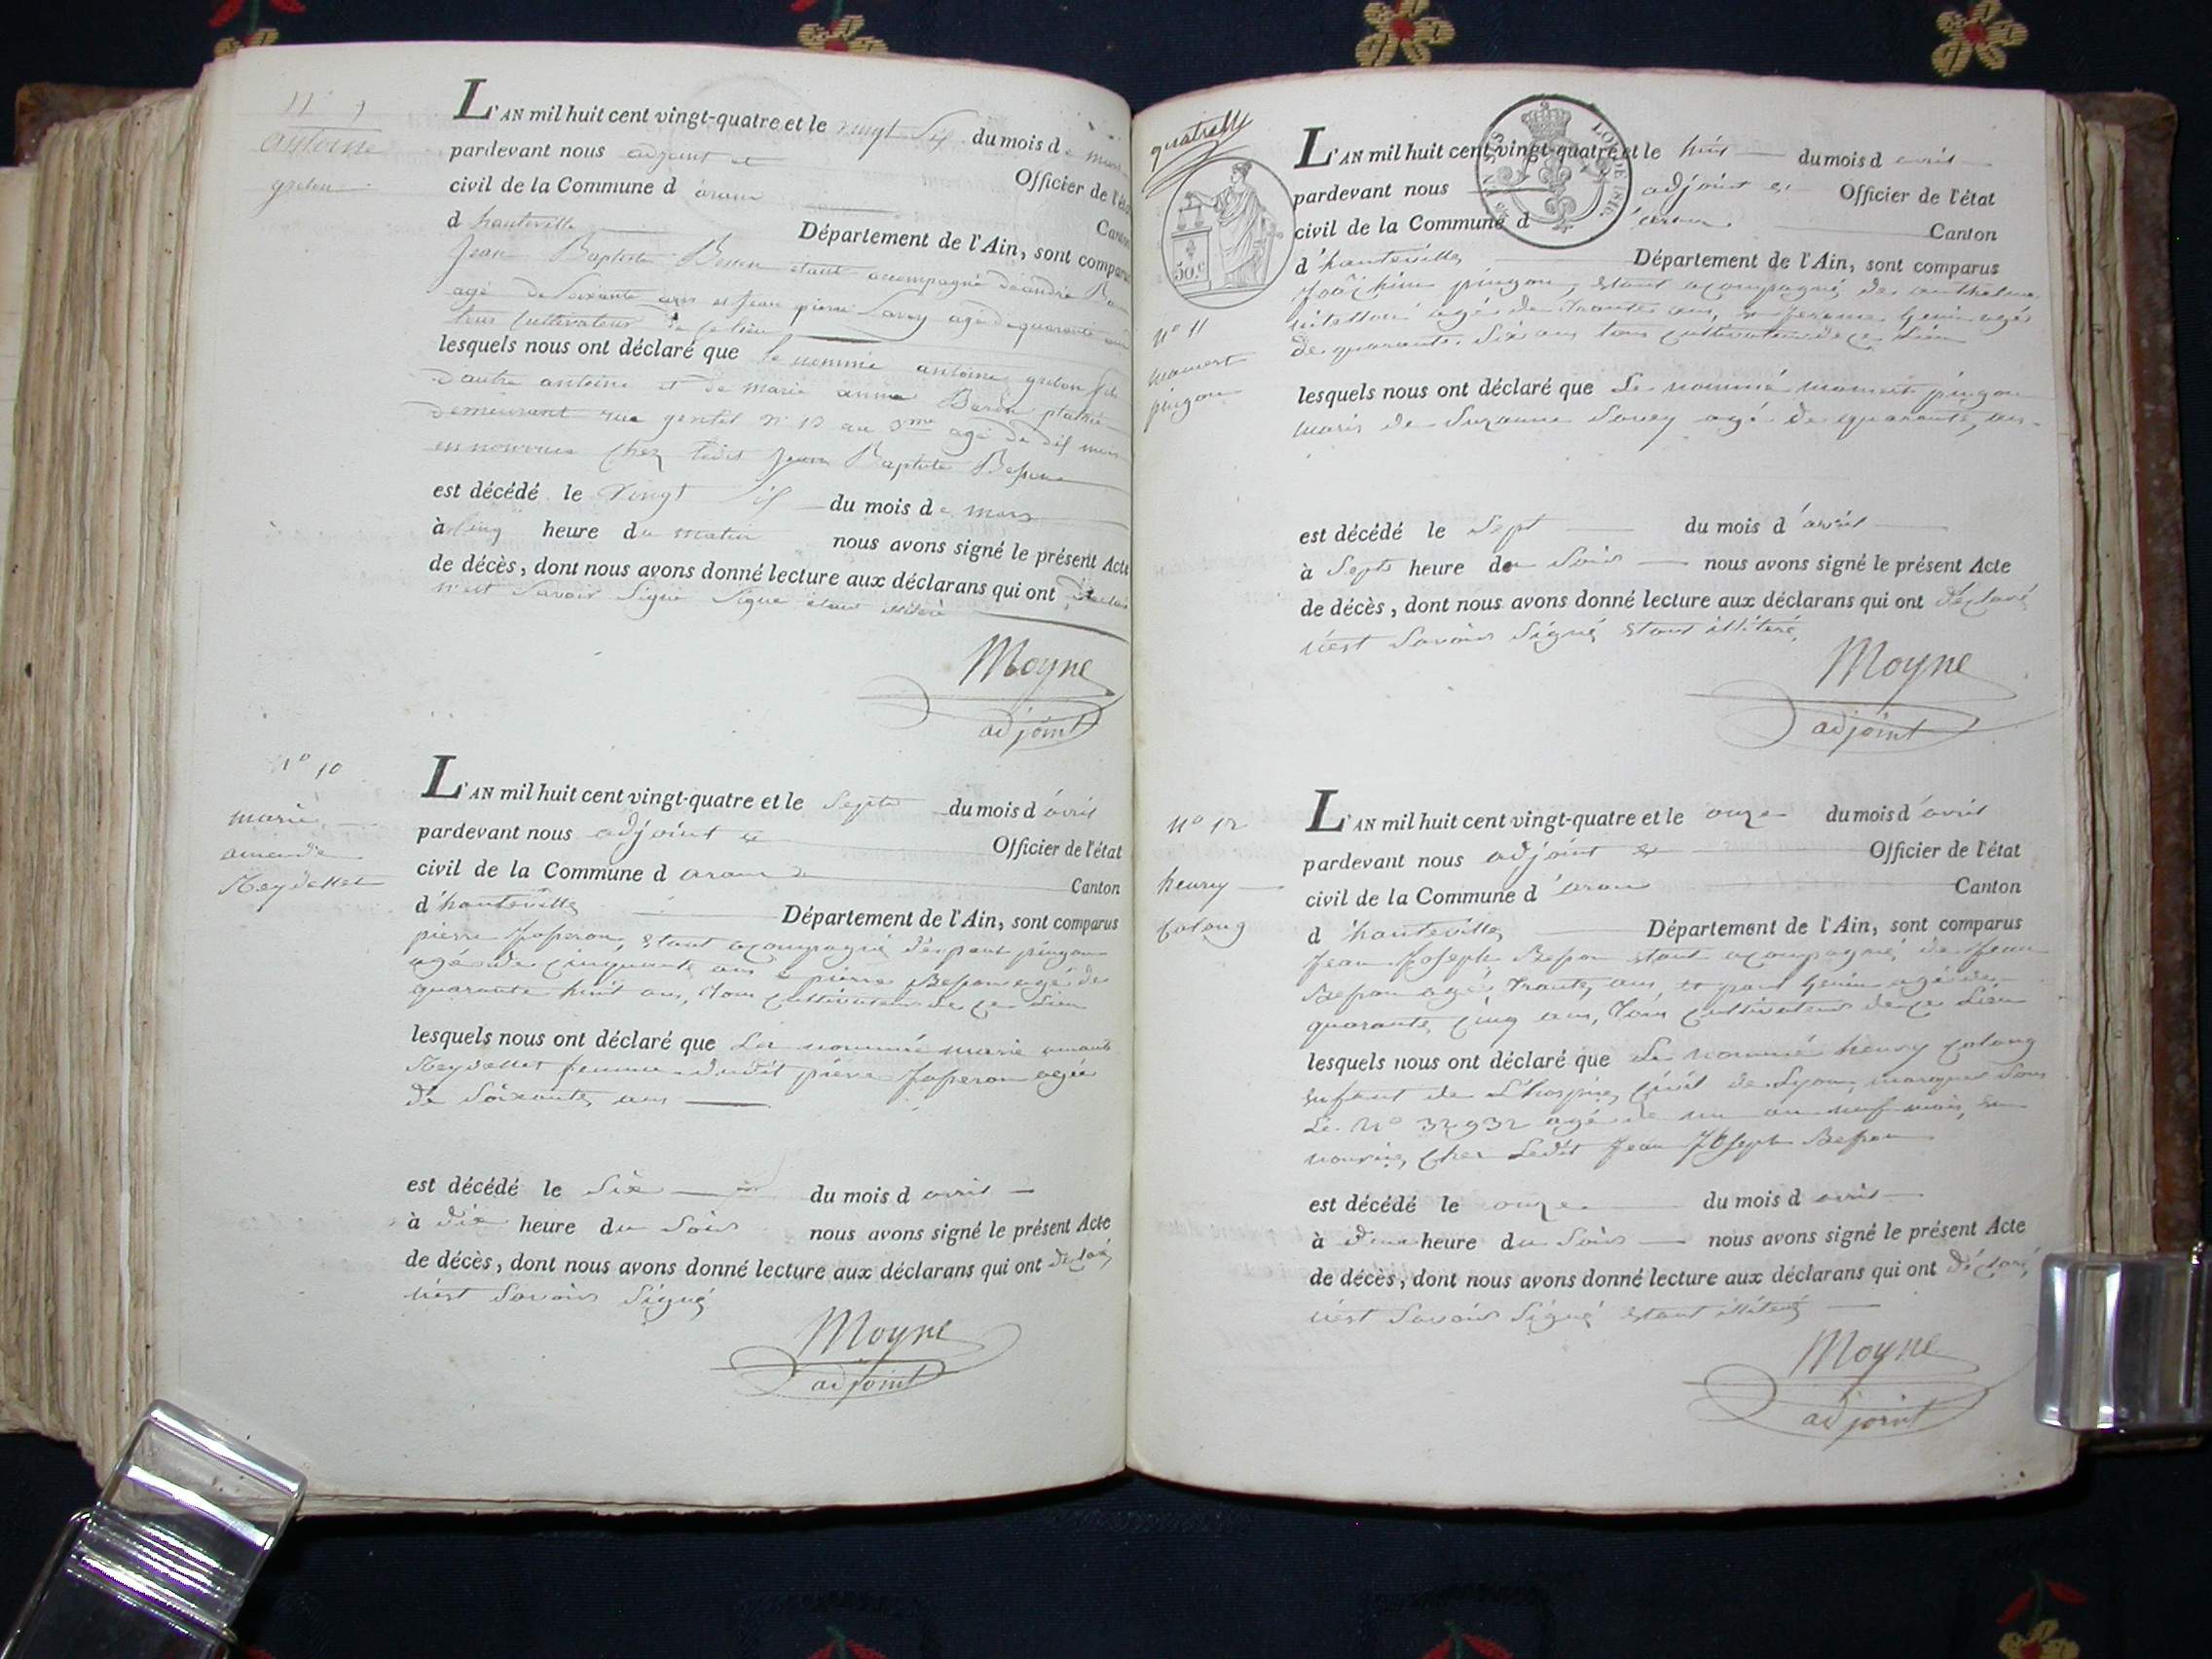 N° 9
antoine
grelon
L'AN mil huit cent vingt-quatre et le vingt six du mois de mars
pardevant nous adjoint et Officier de l'état
civil de la Commune d aranc Canton
d hauteville Département de l'Ain, sont comparus
Jean Baptiste Besson étant accompagné de andré
agé de soixante ans et Jean pierre Savey agé de quarante ans
tous cultivateur de ce lieu
lesquels nous ont déclaré que le nommé antoine grelon fils
d'autre antoine et de marie anne Baron
demeurant rue gentil N° 13 au 3me agé de dix mois
en nourrice chez ledit Jean Baptiste Besson
est décédé le vingt six du mois de mars
à cinq heure du matin nous avons signé le présent Acte
de décès, dont nous avons donné lecture aux déclarans qui ont déclaré
n'est savoir signé étant
Moyne
adjoint
N° 10
marie
aimande
Reydellet
L'AN mil huit cent vingt-quatre et le septe du mois d'avril
pardevant nous adjoint et Officier de l'état
civil de la Commune d aranc Canton
d'hauteville Département de l'Ain, sont comparus
pierre Josperon, étant acompagné de paul pingon
agé de cinquante ans et pierre Besson agé de
quarante huit ans, tous cultivateur de ce Lieu
lesquels nous ont déclaré que La nommé marie
Reydellet femme dudit pierre Josperon agée
de soixante, ans
est décédé le six du mois d avril
à dix heure du soir nous avons signé le présent Acte
de décès, dont nous avons donné lecture aux déclarans qui ont déclaré
n'est savoir signé
Moyne
adjoint
quatre
50.c
N° 11
mamert
pingon
L'AN mil huit cent vingt-quatre et le huit du mois d avril
pardevant nous adjoint et Officier de l'état
civil de la Commune d'aranc Canton
d'hauteville Département de l'Ain, sont comparus
Joachim pingon, étant acompagné de anthelme
agé de trante ans, et Jerome Genin agé
de quarante six ans tous cultivateur de ce Lieu
lesquels nous ont déclaré que Le nommé mamert pingon
maris de Suzanne Savey agé de quarante, ans
est décédé le Sept du mois d'avril
à Septe heure du Soir nous avons signé le présent Acte
de décès, dont nous avons donné lecture aux déclarans qui ont déclaré
n'est savoir signé étant illiteré,
Moyne
adjoint
N° 12
henry
Colong
L'AN mil huit cent vingt-quatre et le onze du mois d'avril
pardevant nous adjoint et Officier de l'état
civil de la Commune d'aranc Canton
d'hauteville Département de l'Ain, sont comparus
Jean Joseph Besson étant acompagné, de Jean
Besson agé, trante, ans, et paul Genin agé de
quarante, cinq ans, tous cultivateur de ce Lieu
lesquels nous ont déclaré que Le nommé henry Colong
enfant de L'hospice, Civil de Lyon, marqué sous
Le N° 32932 agé de un an neuf mois, en
nourrice, chez Ledit Jean Joseph Besson
est décédé le onze du mois d avril
à deux heure du Soir nous avons signé le présent Acte
de décès, dont nous avons donné lecture aux déclarans qui ont déclaré,
n'est savoir signé étant illiteré
Moyne
adjoint